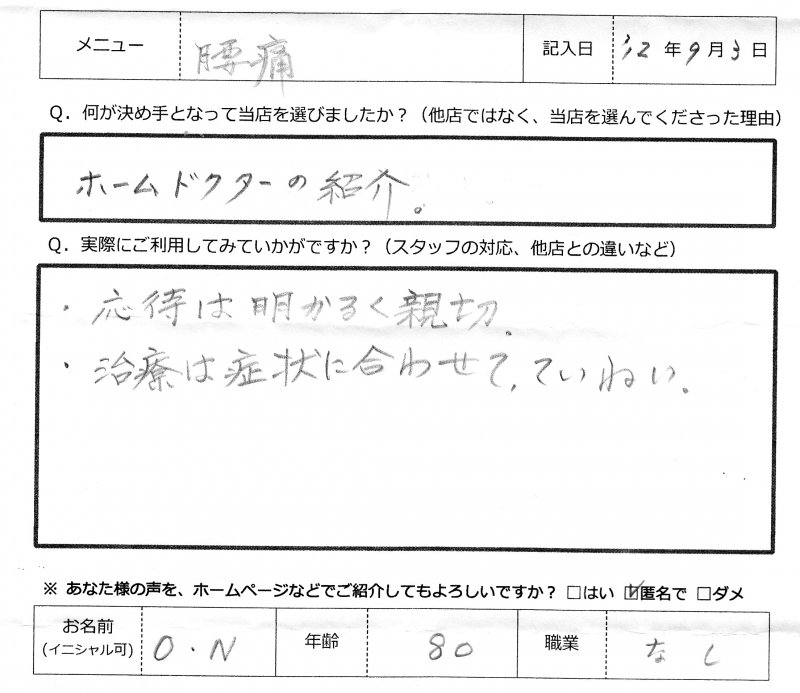 メニュー 腰痛 記入日 '12年9月3日
Q．何が決め手となって当店を選びましたか？（他店ではなく、当店を選んでくださった理由）
ホームドクターの紹介。
Q．実際にご利用してみていかがですか？（スタッフの対応、他店との違いなど）
・応待は明かるく親切.
・治療は症状に合わせて,ていねい.
※ あなた様の声を、ホームページなどでご紹介してもよろしいですか？ □はい ☑匿名で □ダメ
お名前 (イニシャル可) O・N 年齢 80 職業 なし